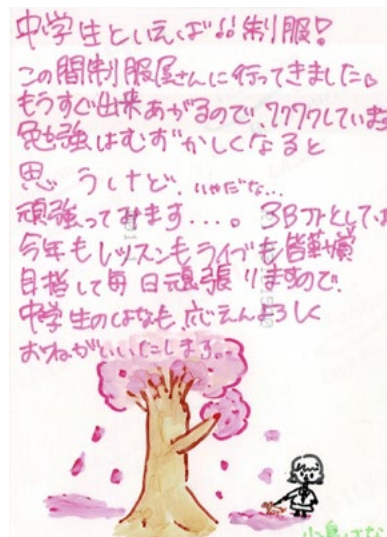 中学生といえば!!制服!
この間制服屋さんに行ってきました。
もうすぐ出来あがるので、ワクワクしていま
勉強はむずかしくなると
思うけど、いやだな...
頑強ってみます...。3Bjrとしては
今年もレッスンもライブも皆勤賞
目指して毎日頑張りますので、
中学生のはなも、応えんよろしく
おねがいいたします。
小島はな